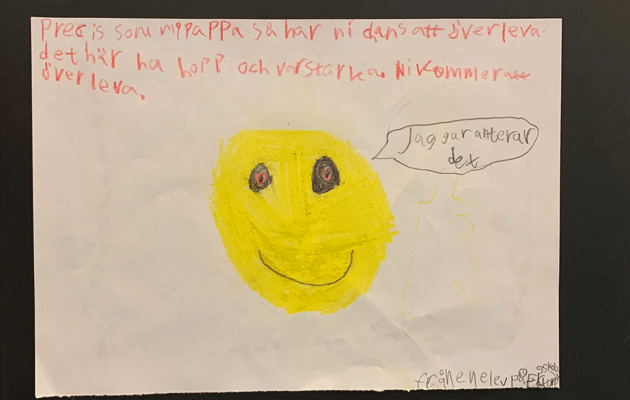 Precis som min pappa sa har ni chans att överleva
det här ha hopp och var starka. Ni kommer att
överleva.
Jag garanterar
det
från en elev på